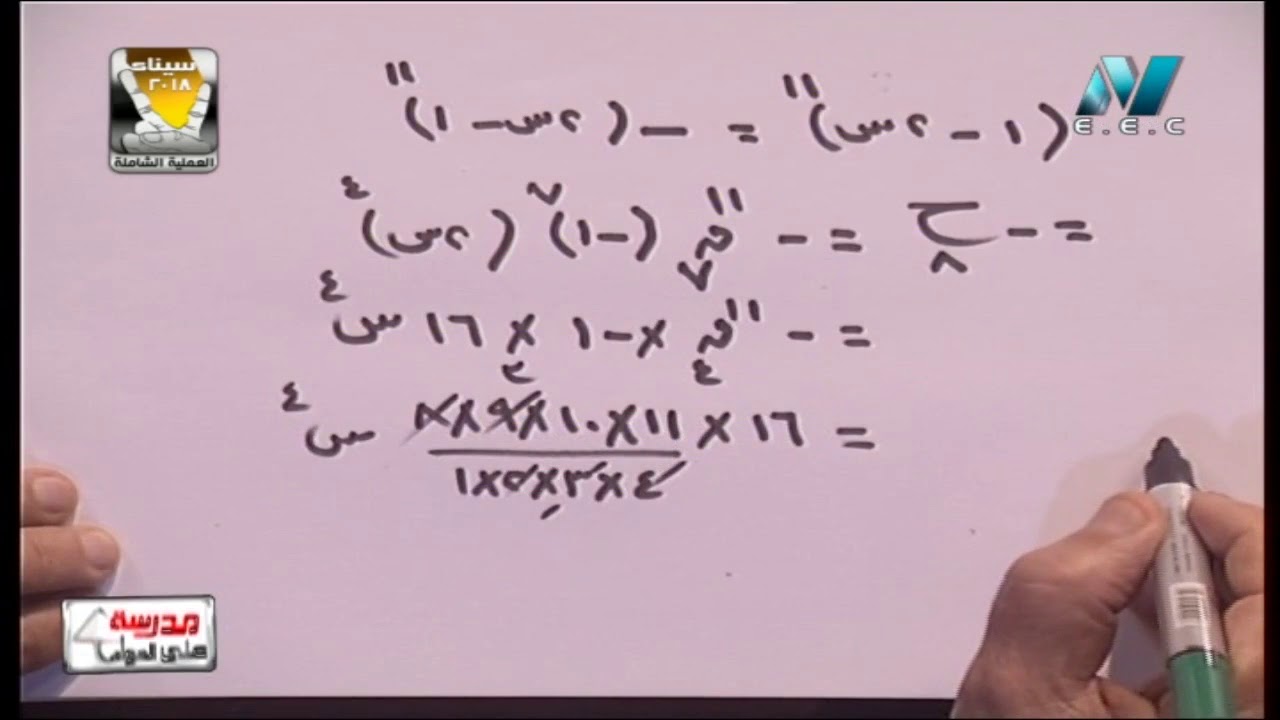 سيناء
٢٠١٨
العملية الشاملة
E.E.C
(١ - ٢س)^١١ = - (٢س - ١)^١١
= - ح_٨ = - ^١١ق_٧ (-١)^٧ (٢س)^٤
= - ^١١ق_٤ × -١ × ١٦ س^٤
= ١٦ × (١١×١٠×٩×٨)/(٤×٣×٢×١) س^٤
مدرسة
على الهواء